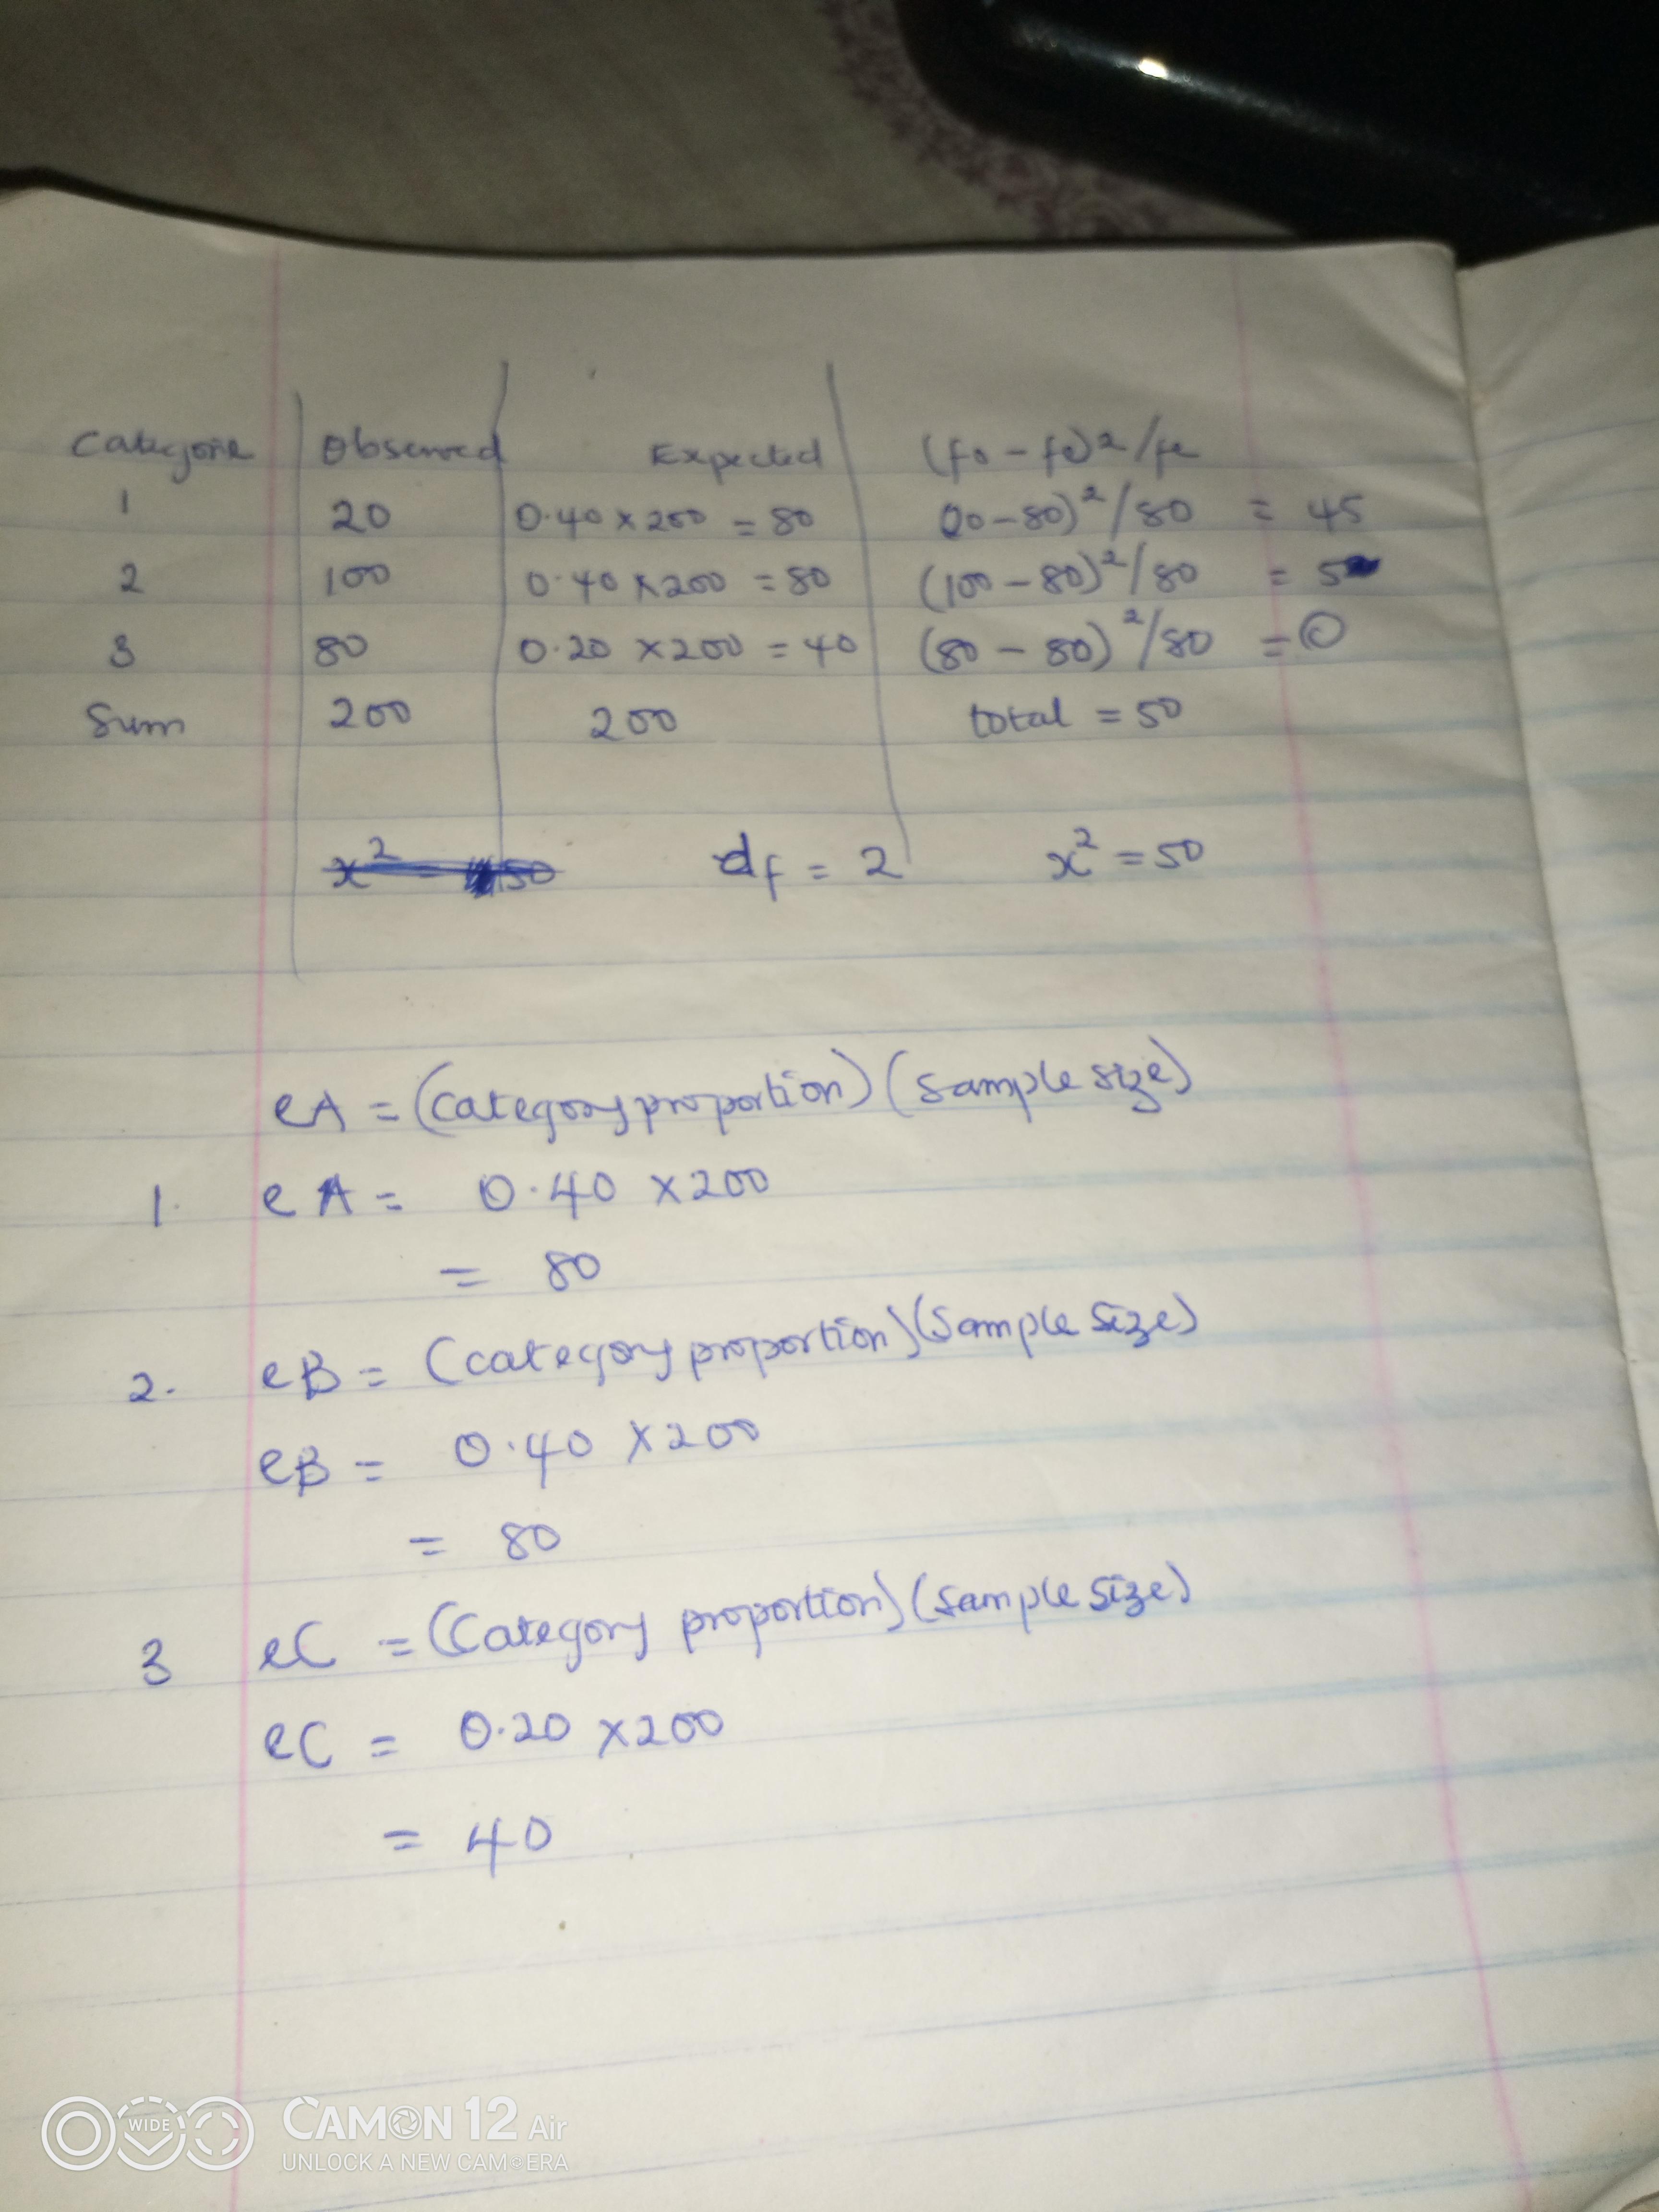 Categorie Observed Expected (fo - fe)2/fe
1 20 0.40 x 200 = 80 (20-80)²/80 = 45
2 100 0.40 x 200 = 80 (100-80)²/80 = 5
3 80 0.20 x 200 = 40 (80-80)²/80 = 0
Sum 200 200 total = 50
df = 2 x² = 50
eA = (Category proportion) (sample size)
1. eA = 0.40 x 200
= 80
2. eB = (category proportion) (Sample Size)
eB = 0.40 x 200
= 80
3 eC = (Category proportion) (sample size)
eC = 0.20 x 200
= 40
WIDE CAMON 12 Air
UNLOCK A NEW CAMERA